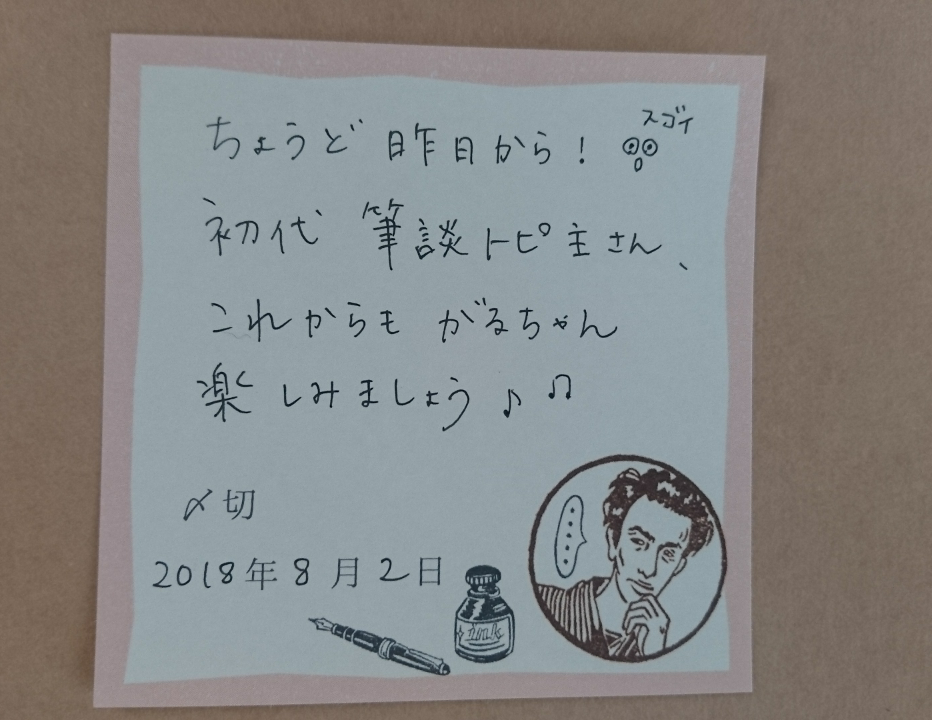 ちょうど 昨日から！ スゴイ
初代 筆談トピ主さん、
これからも がるちゃん
楽しみましょう♪♫
〆切
2018年8月2日
ink